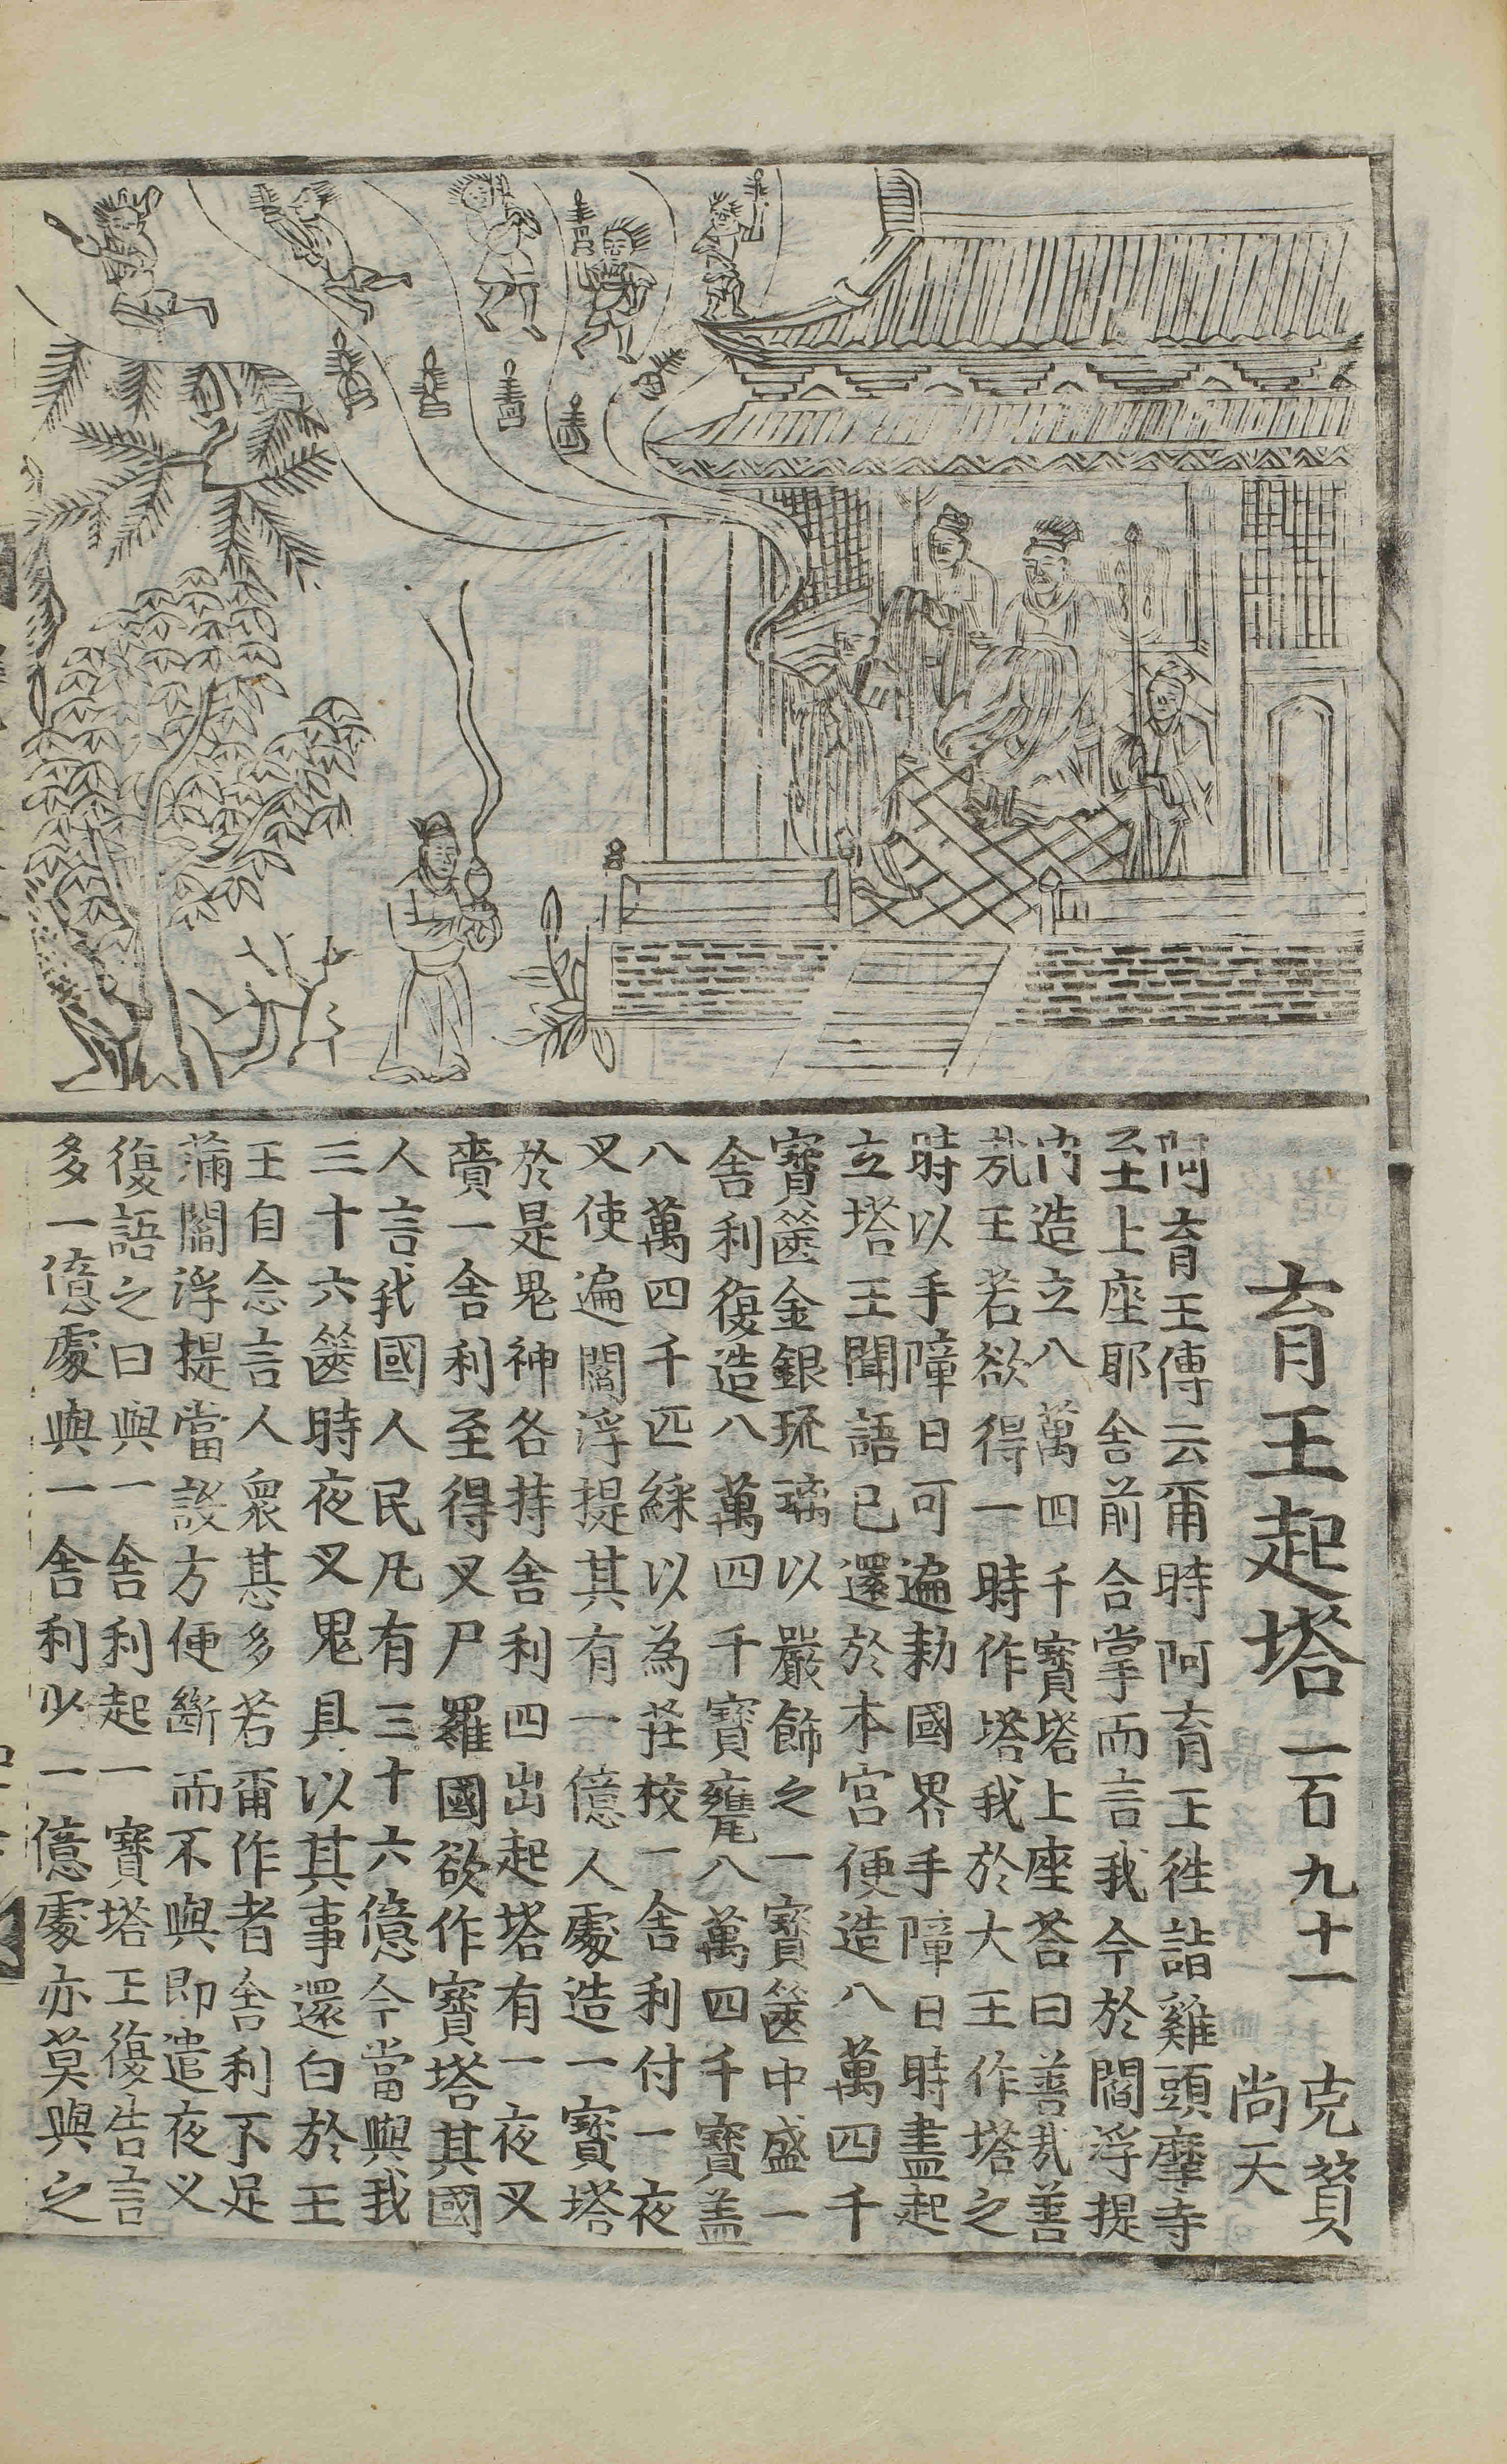 育王起塔一百九十一
克賛
尚天
阿育王傳云爾時阿育王徃詣雞頭摩寺
至上座耶舍前合掌而言我今於閻浮提
内造立八萬四千寶塔上座荅曰善㢤善
㢤王若欲得一時作塔我於大王作塔之
時以手障日可遍勑國界手障日時盡起
立塔王聞語已還於本宫便造八萬四千
寶篋金銀琉璃以嚴飾之一寶篋中盛一
舎利復造八萬四千寶甕八萬四千寶盖
八萬四千匹綵以為莊校一舎利付一夜
叉使遍閻浮提其有一億人處造一寶塔
於是鬼神各持舎利四出起塔有一夜叉
賷一舎利至得叉尸羅國欲作寶塔其國
人言我國人民凡有三十六億今當與我
三十六篋時夜叉鬼具以其事還白於王
王自念言人衆甚多若爾作者舎利不足
蒲閻浮提當設方便斷而不與即遣夜叉
復語之曰與一舎利起一寶塔王復告言
多一億處與一舎利少一億處亦莫與之